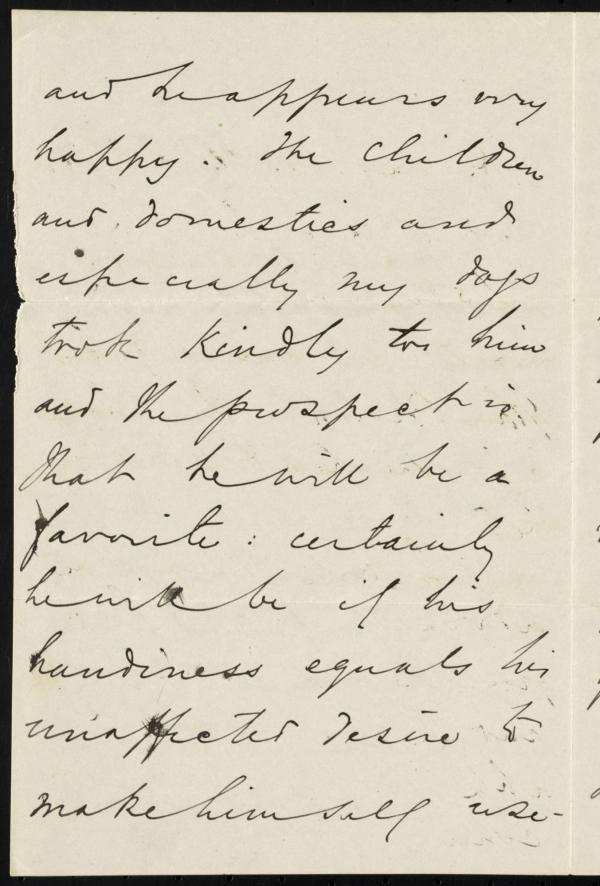 and he appears very
happy. The children
and domestics and
especially my dogs
took kindly to him
and the prospect is
that he will be a
favorite: certainly
he will be if his
handiness equals his
unaffected desire to
make himself use-